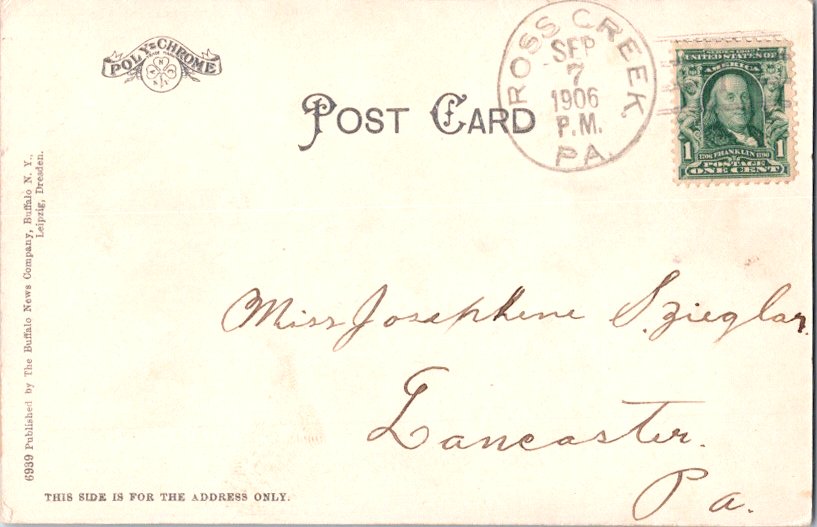 POLY-CHROME
POST CARD
ROSS CREEK.
SEP
7
1906
P.M.
PA.
SERIES 1902
UNITED STATES OF
AMERICA
1 1706 FRANKLIN 1790 1
POSTAGE
ONE CENT
Miss Josephine S. Zieglar.
Lancaster.
Pa.
6939 Published by The Buffalo News Company, Buffalo N. Y.,
Leipzig, Dresden.
THIS SIDE IS FOR THE ADDRESS ONLY.